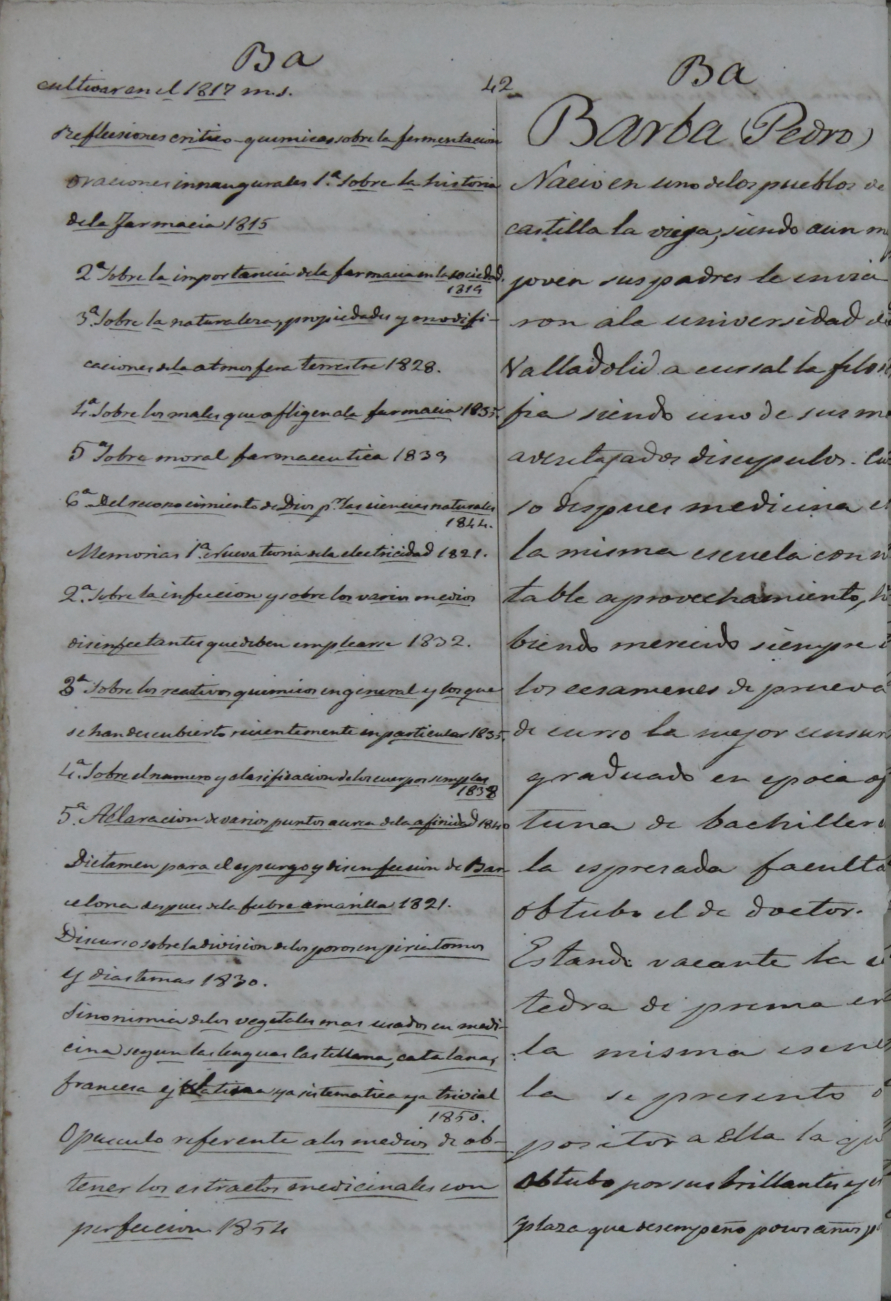 Ba
cultivar en el 1817 m.s.
Reflecsiones critico-quimicas sobre la fermentacion
oraciones innaugurales 1.ª Sobre la historia
de la Farmacia 1815
2ª Sobre la importancia de la farmacia en la sociedad
1819
3ª Sobre la naturaleza, propiedades y modifi-
caciones de la atmosfera terrestre 1828.
4ª Sobre los males que afligen a la farmacia 1835.
5ª Sobre moral farmaceutica 1839
6ª Del reconocimiento de Dios pr. las ciencias naturales
1844.
Memorias 1ª Nueva teoria de la electricidad 1821.
2ª Sobre la infeccion y sobre los varios medios
disinfectantes que deben emplearse 1832.
3ª Sobre los reactivos quimicos en general y los que
se han descubierto recientemente en particular 1835.
4ª Sobre el numero y clasificacion de los cuerpos simples
1838
5ª Aclaracion de varios puntos acerca de la afinidad 1840
Dictamen para el espurgo y disinfeccion de Bar
celona despues de la fiebre amarilla 1821.
Discurso sobre la division de los poros en piriatomos
y diastemas 1830.
Sinonimia de los vegetales mas usados en medi-
cina segun las lenguas Castellana, catalana,
francesa y latina ya sistematica ya trivial
1850.
Opusculo referente a los medios de ob-
tener los estractos medicinales con
perfeccion 1854
42
Ba
Barba (Pedro)
Nacio en uno de los pueblos de
castilla la vieja, siendo aun m
joven sus padres le envia
ron a la universidad de
Valladolid a cursal la filoso
fia siendo uno de sus ma
aventajados discipulos. Cur
so despues medicina e
la misma escuela con n
table aprovechamiento, ha
biendo merecido siempre e
los ecsamenes de prueva
de curso la mejor censura
graduado en epoca o
tuna de bachiller e
la espresada faculta
obtubo el de doctor.
Estando vacante la ca
tedra de prima en
la misma escue
la se presento o
positor a ella la qu
obtubo por sus brillantes ej
plaza que desempeño pocos años p